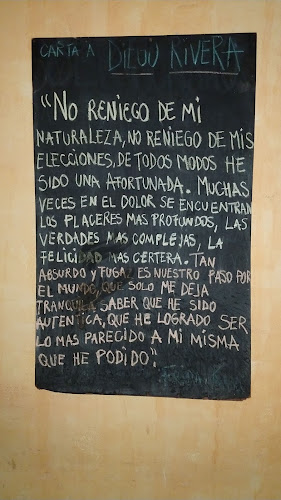 CARTA A DIEGO RIVERA
"NO RENIEGO DE MI
NATURALEZA, NO RENIEGO DE MIS
ELECCIONES, DE TODOS MODOS HE
SIDO UNA AFORTUNADA. MUCHAS
VECES EN EL DOLOR SE ENCUENTRAN
LOS PLACERES MAS PROFUNDOS, LAS
VERDADES MAS COMPLEJAS, LA
FELICIDAD MAS CERTERA. TAN
ABSURDO y FUGAZ ES NUESTRO PASO POR
EL MUNDO, QUE SOLO ME DEJA
TRANQUILA SABER QUE HE SIDO
AUTENTICA, QUE HE LOGRADO SER
LO MAS PARECIDO A MI MISMA
QUE HE PODIDO".